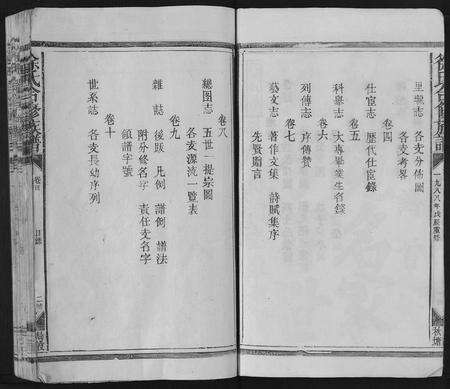 徐氏合修族譜
一九八八年戊辰重修
里籍志 各支分佈圖
各支考畧
卷四
仕宦志 歷代仕宦錄
卷五
科舉志 大專畢業生名錄
卷六
列傳志 序傳贊
卷七
藝文志 著作文集 詩賦集序
先賢閣言
卷八
總圖志 五世一提宗圖
各支源流一覽表
卷九
雜誌 後跋 凡例 譜例 譜法
附分修名字 責任支名字
領譜字號
卷十
世系誌 各支長幼序列
徐氏合修族譜
卷首
目錄